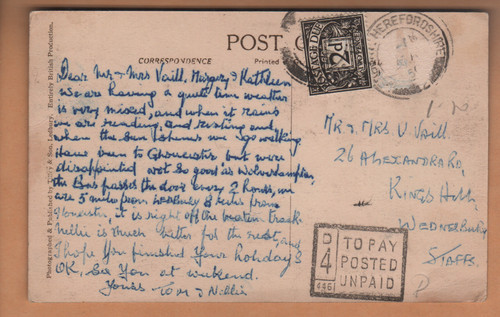 POST
CORRESPONDENCE
Printed
Photographed & Published by Tilley & Son, Ledbury. Entirely British Production.
Dear Mr & Mrs Vaill, Margery & Kathleen
we are having a quiet time weather
is very mixed, and when it rains
we are reading, and resting and
when the sun shines we go walking.
Have been to Gloucester but were
disappointed not so good as Wolverhampton,
the Bus passes the door every 2 hours, we
are 5 miles from Ledbury 8 miles from
Gloucester, it is right off the beaten track
Nellie is much better for the rest, and
I hope you finished your holidays
OK, See You at weekend.
Yours Tom & Nellie
POSTAGE DUE
2d
HEREFORDSHIRE
Mr & Mrs V. Vaill.
26 Alexandra Rd,
Kings Hill
Wednesbury
Staffs.
D
4
446
TO PAY
POSTED
UNPAID